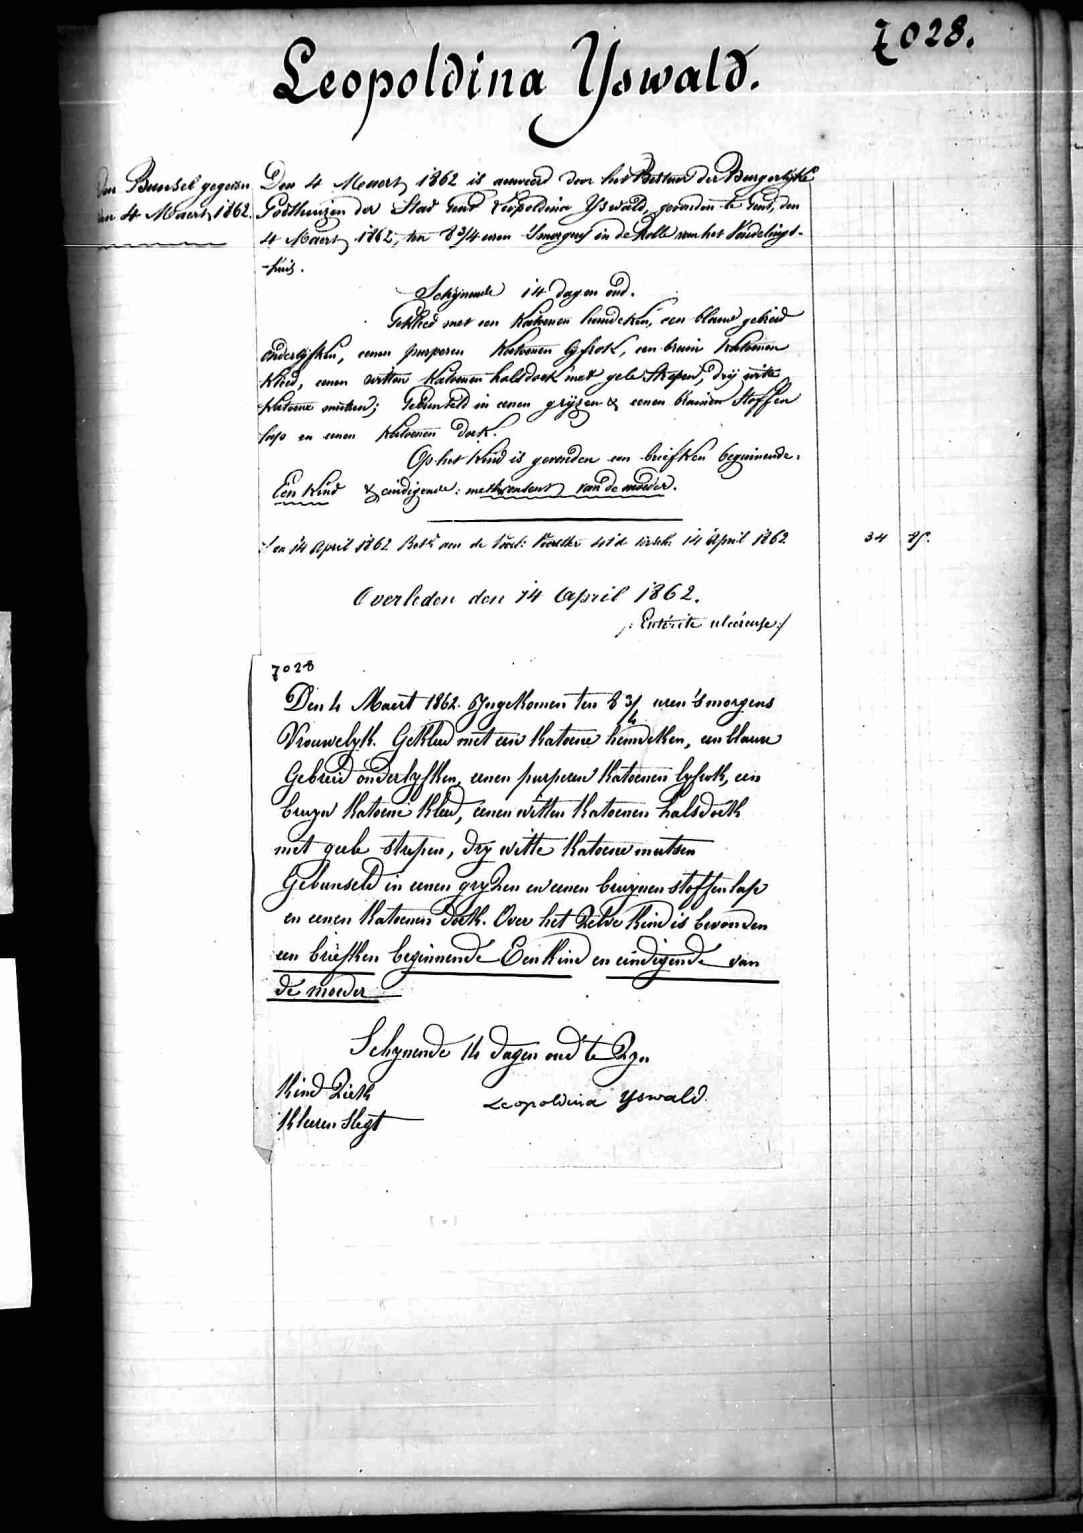 7028.
Leopoldina Yswald.
Den Bunsel gegeven
den 4 Maert 1862.
Den 4 Maert 1862 is aenveerd door het Bestuur der Burgerlyke
Godshuizen der Stad Gent Leopoldina Yswald, gevonden te Gent, den
4 Maert 1862, ten 8 3/4 uren 'Smorgens in de Rolle van het Vondelings-
-huis.
Schijnende 14 dagen oud.
Gekleed met een Katoenen hemdeken, een blauw gebreid
onderlyfken, eenen purperen Katoenen lyfrok, een bruin Katoenen
Kleed, eenen witten Katoenen halsdoek met gele Strepen, drij witte
Katoene mutsen; Gebunseld in eenen grijzen & eenen bruinen Stoffen
lap en eenen Katoenen doek.
Op het Kind is gevonden een briefken beginnende:
Een Kind & eindigende: van de moeder.
den 14 April 1862 14 April 1862 34
Overleden den 14 April 1862.
/: Entérite ulcéreuse :/
7028
Den 4 Maert 1862. Yngekomen ten 8 3/4 uren 's morgens
Vrouwelyk. Gekleed met een Katoene hemdeken, een blauw
Gebreid onderlyfken, eenen purperen Katoenen lyfrok, een
bruyn Katoene Kleed, eenen witten Katoenen halsdoek
met geele strepen, dry witte Katoene mutsen
Gebunseld in eenen gryzen en eenen bruynen stoffen lap
en eenen Katoenen doek. Over het Zelve Kind is bevonden
een briefken beginnende Een Kind en eindigende van
de moeder
Schynende 14 dagen oud te Zyn
Kind Ziek
Kleeren Slegt
Leopoldina Yswald.